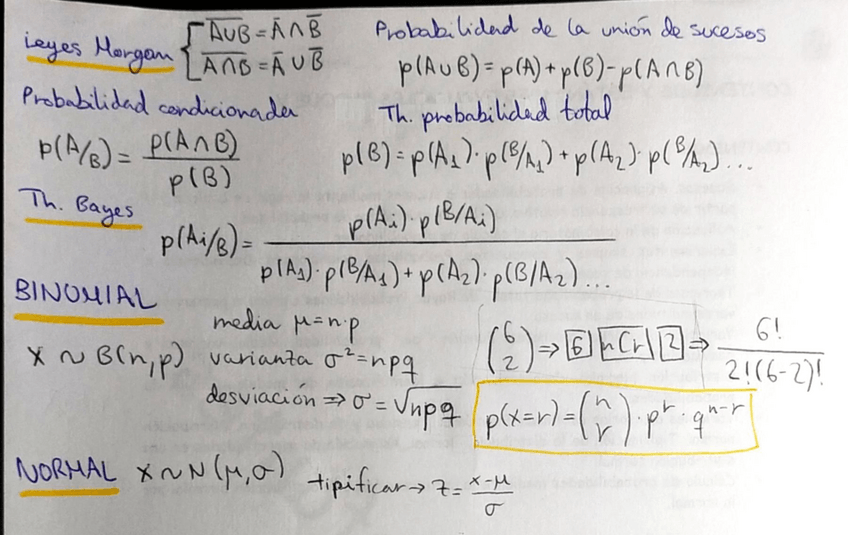 Leyes Morgan { A̅∪̅B̅ = A̅ ∩ B̅
A̅∩̅B̅ = A̅ ∪ B̅
Probabilidad de la unión de sucesos
p(A∪B) = p(A) + p(B) - p(A∩B)
Probabilidad condicionada
p(A/B) = p(A∩B) / p(B)
Th. probabilidad total
p(B) = p(A₁) · p(B/A₁) + p(A₂) · p(B/A₂) ...
Th. Bayes
p(Ai/B) = p(Ai) · p(B/Ai) / p(A₁) · p(B/A₁) + p(A₂) · p(B/A₂) ...
BINOMIAL
X ~ B(n,p)
media μ = n·p
varianza σ² = npq
desviación ⇒ σ = √npq
(6 2) ⇒ 6 nCr 2 ⇒ 6! / 2!(6-2)!
p(x=r) = (n r) · pʳ · qⁿ⁻ʳ
NORMAL X ~ N(μ,σ) tipificar → z = x-μ / σ